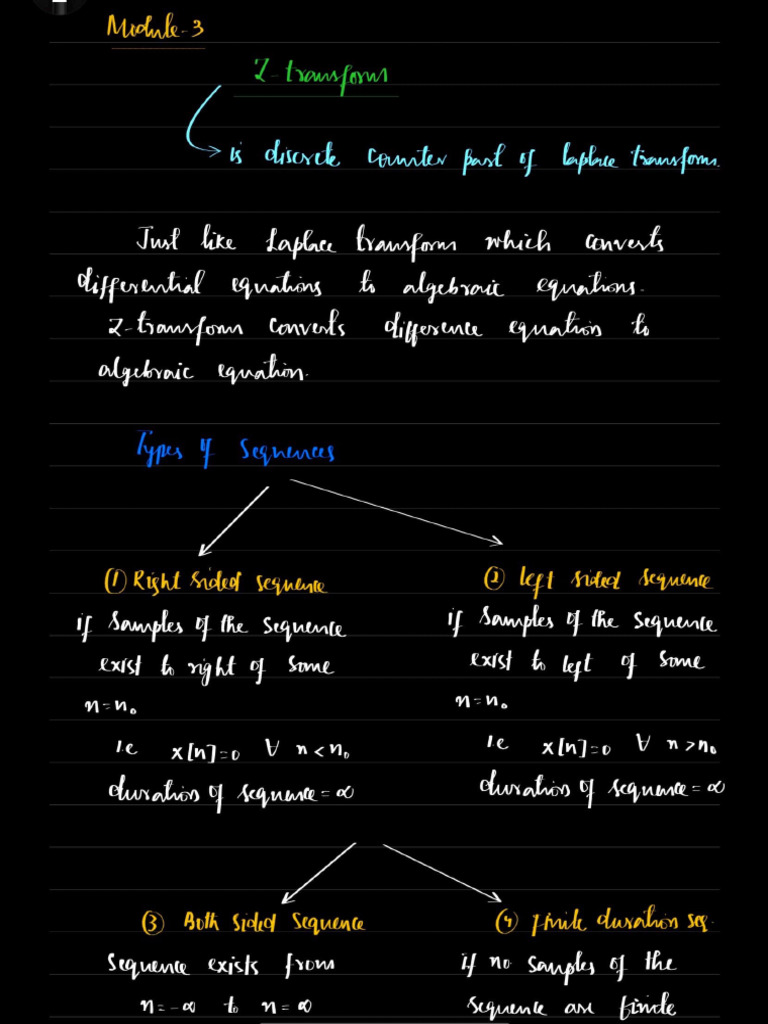 Module-3
Z-transform
is discrete counter part of laplace transform.
Just like Laplace transform which converts
differential equations to algebraic equations.
Z-transform converts difference equation to
algebraic equation.
Types of Sequences
(1) Right sided sequence
if samples of the sequence
exist to right of some
n=n₀
i.e x[n]=0 ∀ n<n₀
duration of sequence=∞
(2) left sided sequence
if samples of the sequence
exist to left of some
n=n₀
i.e x[n]=0 ∀ n>n₀
duration of sequence=∞
(3) Both sided sequence
sequence exists from
n=-∞ to n=∞
(4) finite duration seq.
if no samples of the
sequence are finite